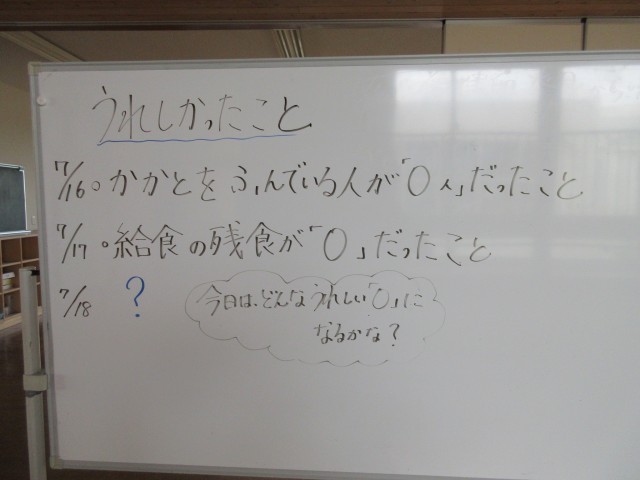 うれしかったこと
7/16。かかとをふんでいる人が「0人」だったこと
7/17。給食の残食が「0」だったこと
7/18 ?
今日は、どんなうれしい「0」に
なるかな?